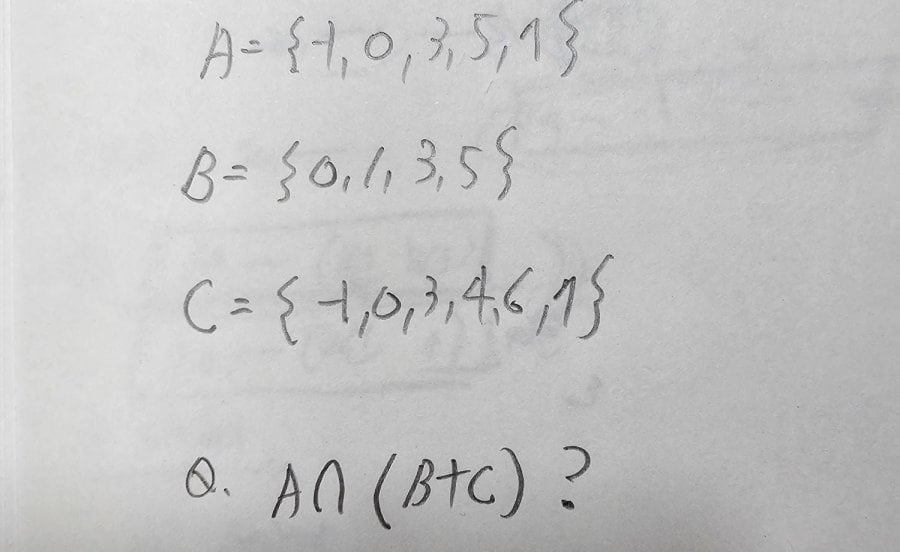 A = {-1, 0, 3, 5, 7}
B = {0, 1, 3, 5}
C = {-1, 0, 3, 4, 6, 7}
Q. A∩(B+C)?